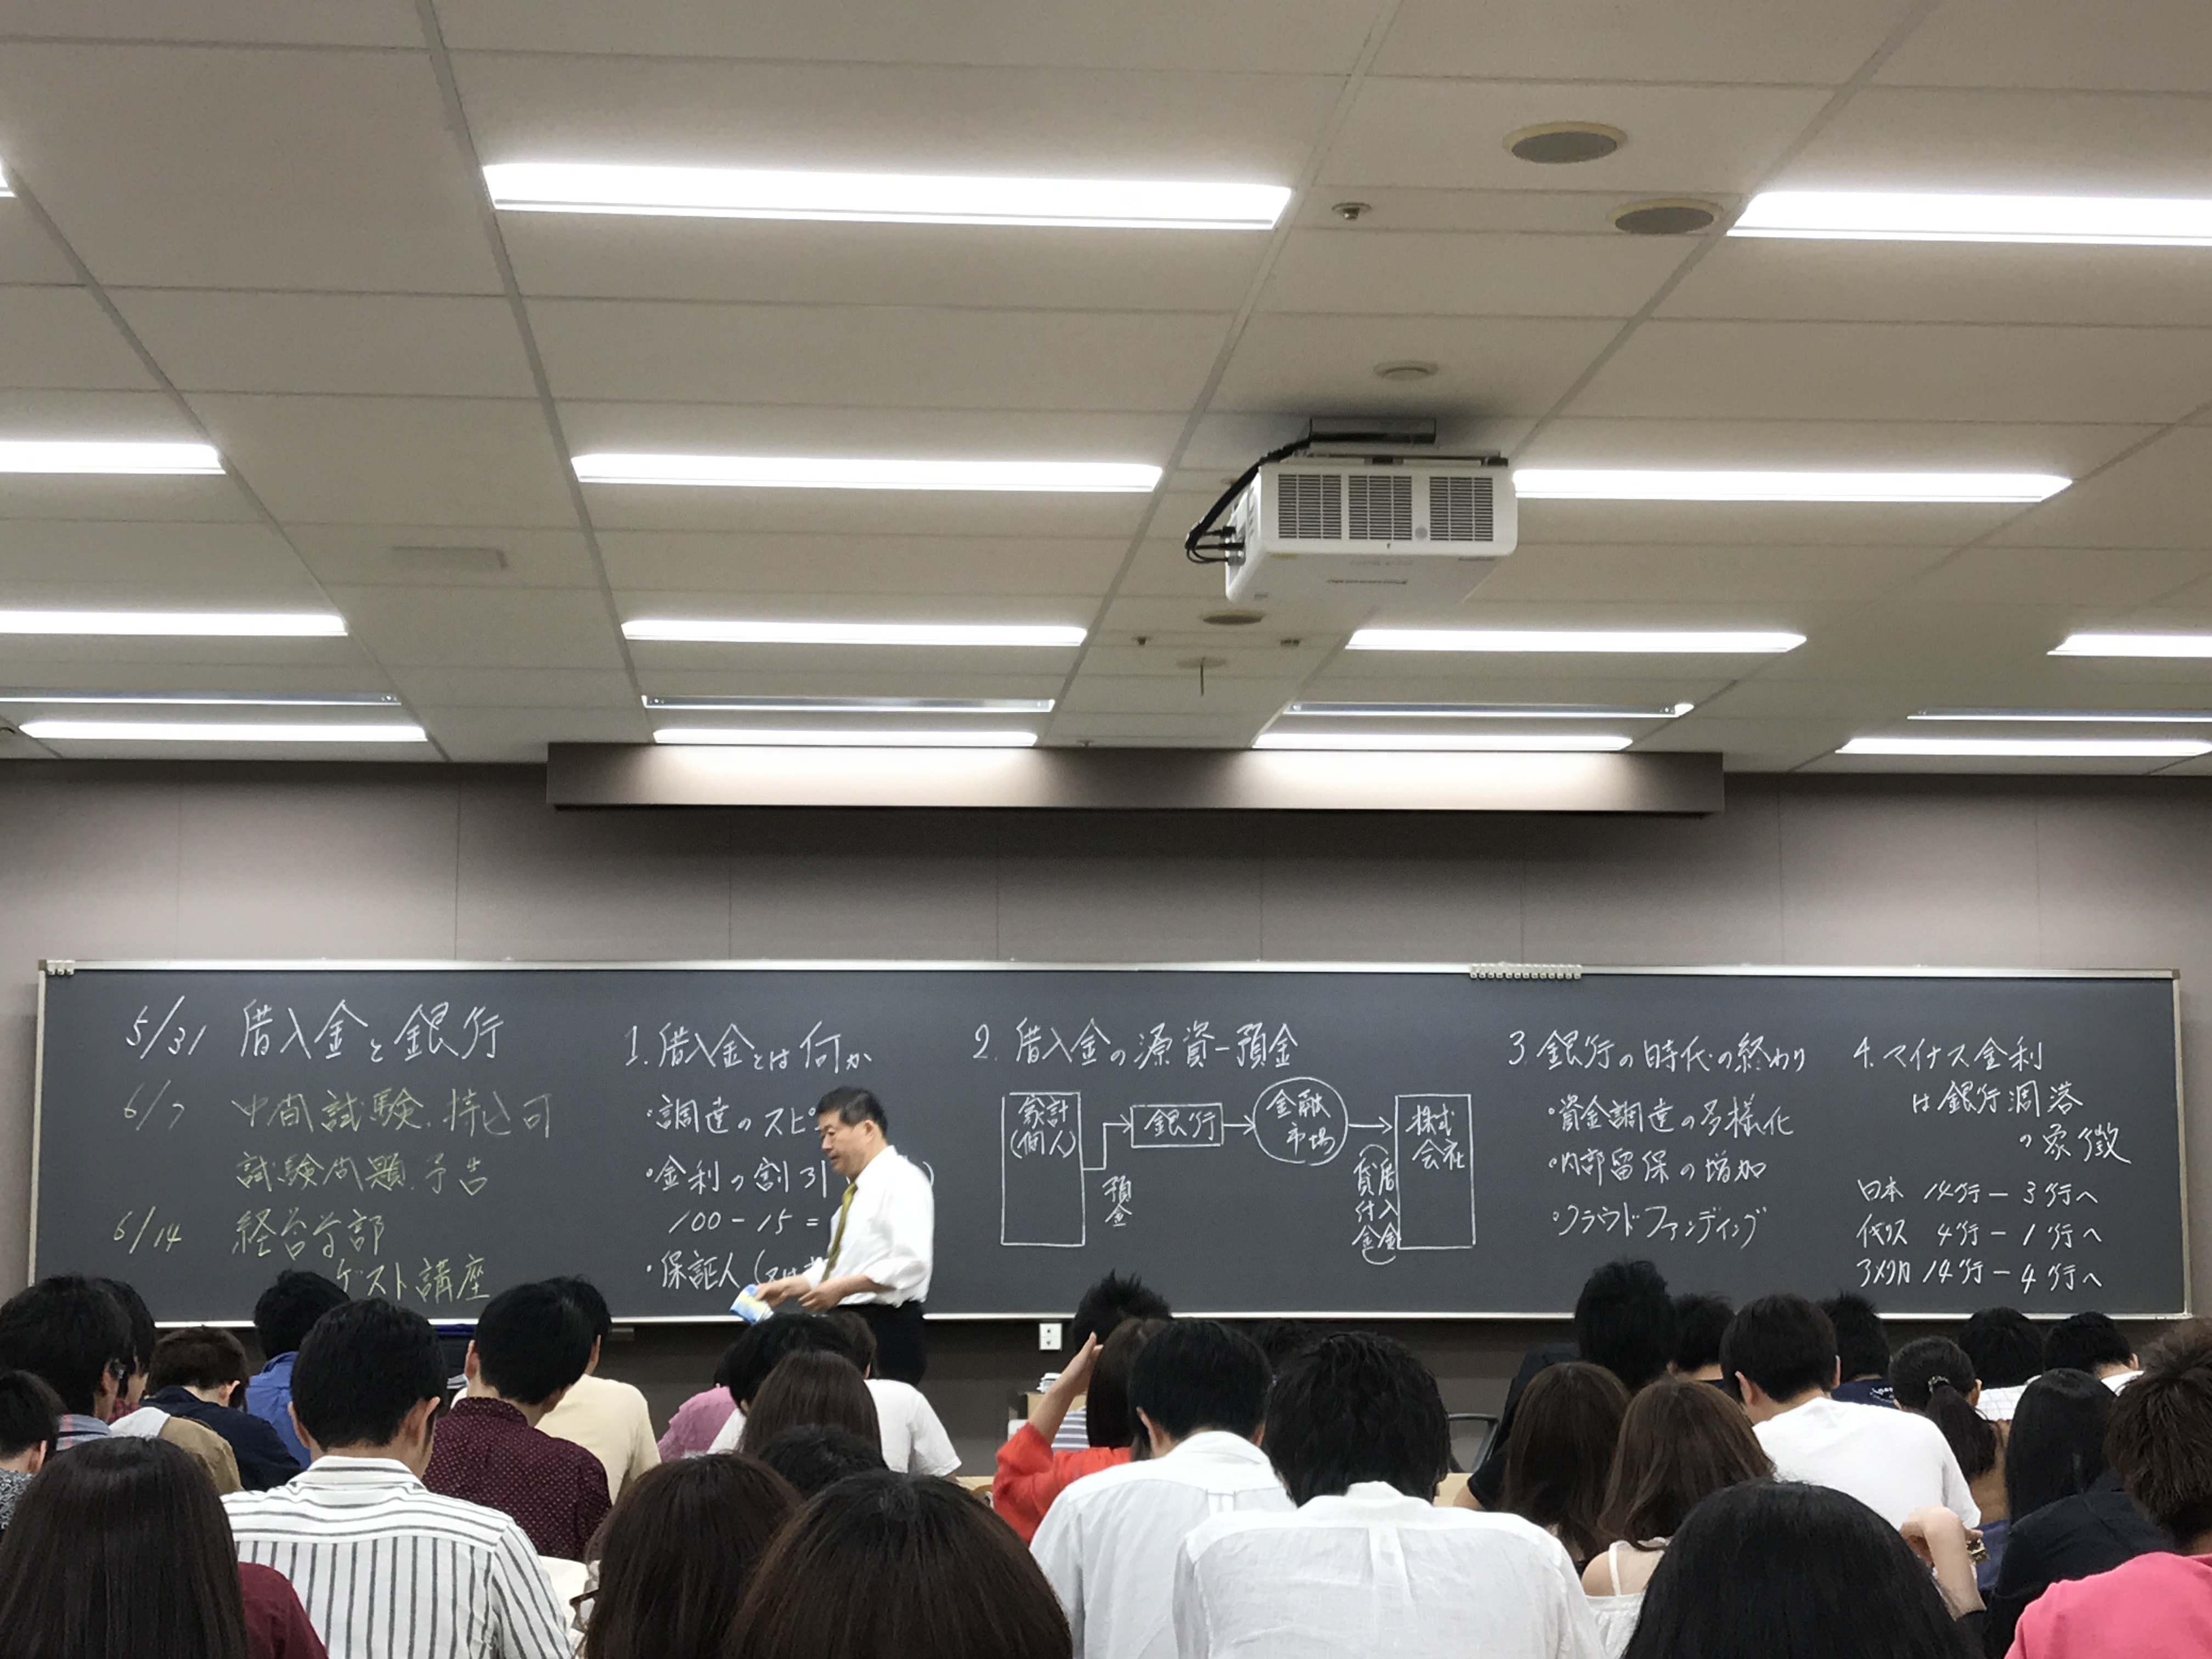 5/31 借入金と銀行
6/7 中間試験.持込可
試験問題.予告
6/14 経営学部
ゲスト講座
1.借入金とは何か
・調達のスピ
・金利の割引
100-15=
・保証人(又は
2.借入金の源資-預金
家計
(個人)
預金
銀行
金融
市場
借入金
貸付金
株式
会社
3.銀行の時代の終わり
・資金調達の多様化
・内部留保の増加
・クラウドファンディング
4.マイナス金利
は銀行凋落
の象徴
日本 14行-3行へ
イギリス 4行-1行へ
アメリカ 14行-4行へ